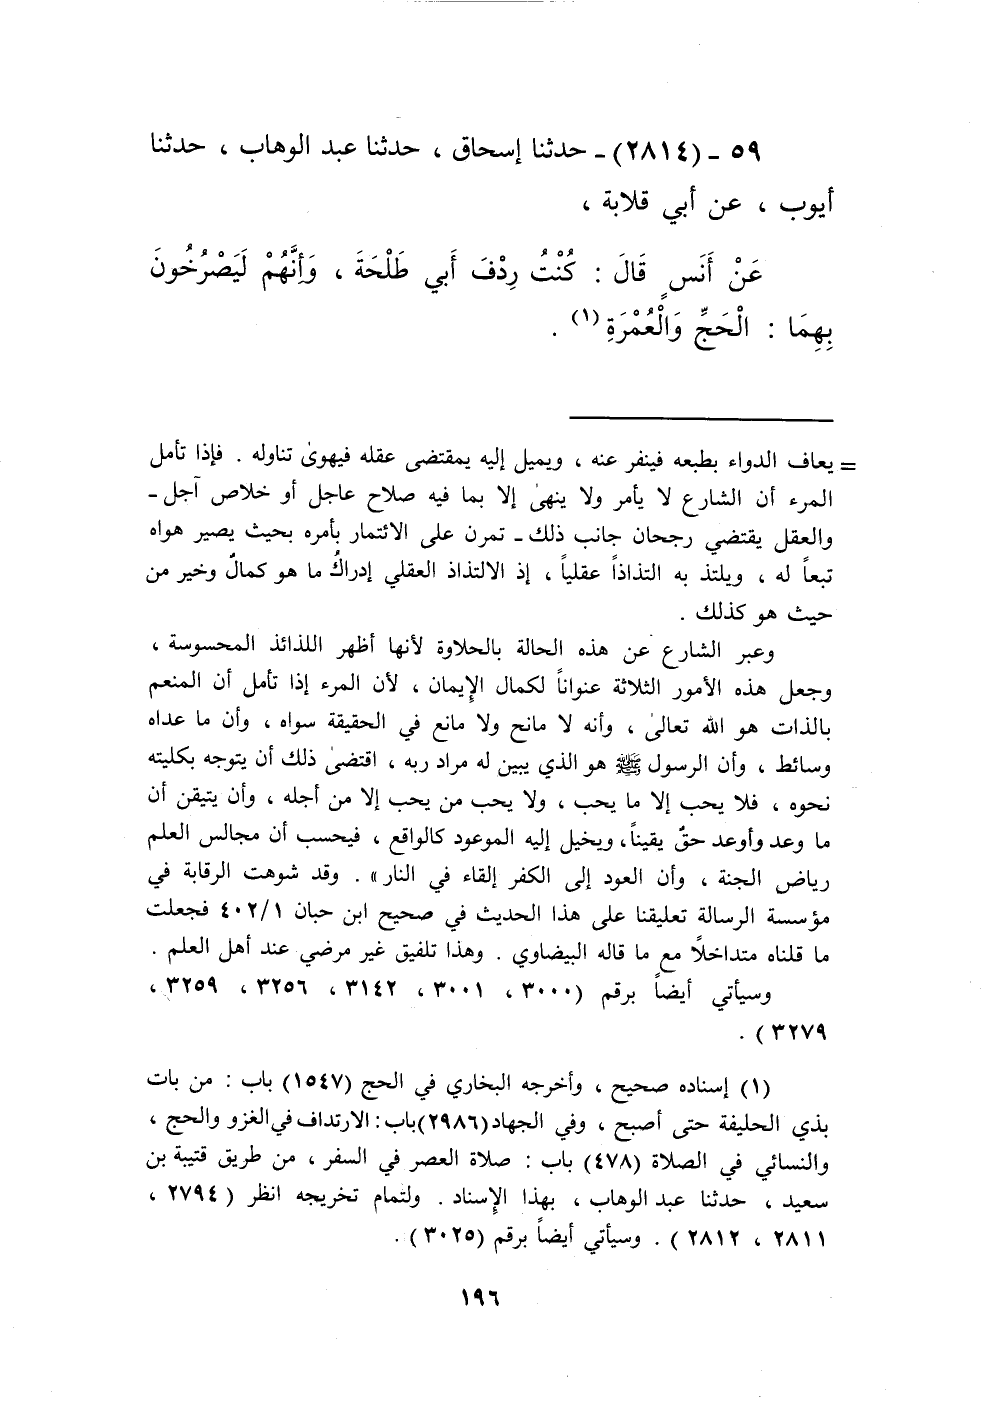 ٥٩ ـ (٢٨١٤) ـ حدثنا إسحاق ، حدثنا عبد الوهاب ، حدثنا
أيوب ، عن أبي قلابة ،
عَنْ أَنَسٍ قَالَ : كُنْتُ رِدْفَ أَبي طَلْحَةَ ، وَأِنَّهُمْ لَيَصْرُخُونَ
بِهِمَا : الْحَجِّ وَالْعُمْرَةِ (١) .
= يعاف الدواء بطبعه فينفر عنه ، ويميل إليه بمقتضى عقله فيهوىٰ تناوله . فإذا تأمل
المرء أن الشارع لا يأمر ولا ينهىٰ إلا بما فيه صلاح عاجل أو خلاص آجل ـ
والعقل يقتضي رجحان جانب ذلك ـ تمرن على الائتمار بأمره بحيث يصير هواه
تبعاً له ، ويلتذ به التذاذاً عقلياً ، إذ الالتذاذ العقلي إدراكُ ما هو كمالٌ وخير من
حيث هو كذلك .
وعبر الشارع عن هذه الحالة بالحلاوة لأنها أظهر اللذائذ المحسوسة ،
وجعل هذه الأمور الثلاثة عنواناً لكمال الإِيمان ، لأن المرء إذا تأمل أن المنعم
بالذات هو الله تعالىٰ ، وأنه لا مانح ولا مانع في الحقيقة سواه ، وأن ما عداه
وسائط ، وأن الرسول ﷺ هو الذي يبين له مراد ربه ، اقتضىٰ ذلك أن يتوجه بكليته
نحوه ، فلا يحب إلا ما يحب ، ولا يحب من يحب إلا من أجله ، وأن يتيقن أن
ما وعد وأوعد حقٌ يقيناً، ويخيل إليه الموعود كالواقع ، فيحسب أن مجالس العلم
رياض الجنة ، وأن العود إلى الكفر إلقاء في النار » . وقد شوهت الرقابة في
مؤسسة الرسالة تعليقنا على هذا الحديث في صحيح ابن حبان ٤٠٢/١ فجعلت
ما قلناه متداخلاً مع ما قاله البيضاوي . وهذا تلفيق غير مرضي عند أهل العلم .
وسيأتي أيضاً برقم (٣٠٠٠ ، ٣٠٠١ ، ٣١٤٢ ، ٣٢٥٦ ، ٣٢٥٩ ،
٣٢٧٩) .
(١) إسناده صحيح ، وأخرجه البخاري في الحج (١٥٤٧) باب : من بات
بذي الحليفة حتى أصبح ، وفي الجهاد (٢٩٨٦) باب : الارتداف في الغزو والحج ،
والنسائي في الصلاة (٤٧٨) باب : صلاة العصر في السفر ، من طريق قتيبة بن
سعيد ، حدثنا عبد الوهاب ، بهذا الإِسناد . ولتمام تخريجه انظر (٢٧٩٤ ،
٢٨١١ ، ٢٨١٢) . وسيأتي أيضاً برقم (٣٠٢٥) .
١٩٦